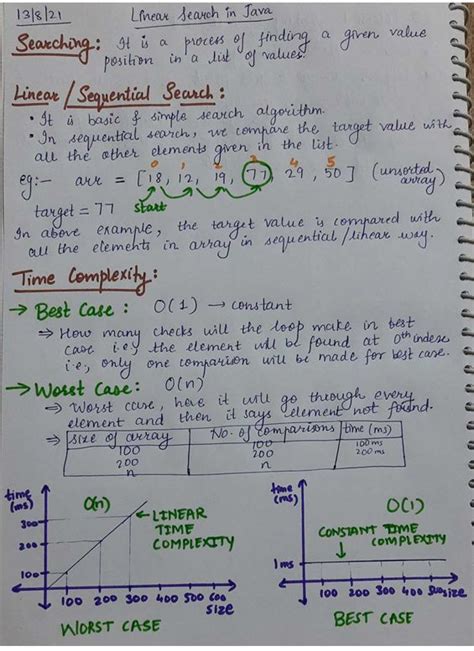 13/8/21
Linear Search in Java
Searching: It is a process of finding a given value
position in a list of values.
Linear/Sequential Search:
• It is basic & simple search algorithm.
• In sequential search, we compare the target value with
all the other elements given in the list.
0 1 2 3 4 5
eg:- arr = [18, 12, 19, 77, 29, 50] (unsorted
array)
target = 77 start
In above example, the target value is compared with
all the elements in array in sequential/linear way.
Time Complexity:
→ Best Case: O(1) → constant
⇒ How many checks will the loop make in best
case i.e, the element will be found at 0th index
i.e, only one comparison will be made for best case.
→ Worst Case: O(n)
⇒ Worst case, here it will go through every
element and then it says element not found.
⇒ Size of array No. of comparisons time (ms)
100 100 100ms
200 200 200ms
n n
time
(ms)
O(n)
300
200
100
← LINEAR
TIME
COMPLEXITY
100 200 300 400 500 600
size
WORST CASE
time
(ms)
O(1)
CONSTANT TIME
COMPLEXITY
1ms
100 200 300 400 500 size
BEST CASE